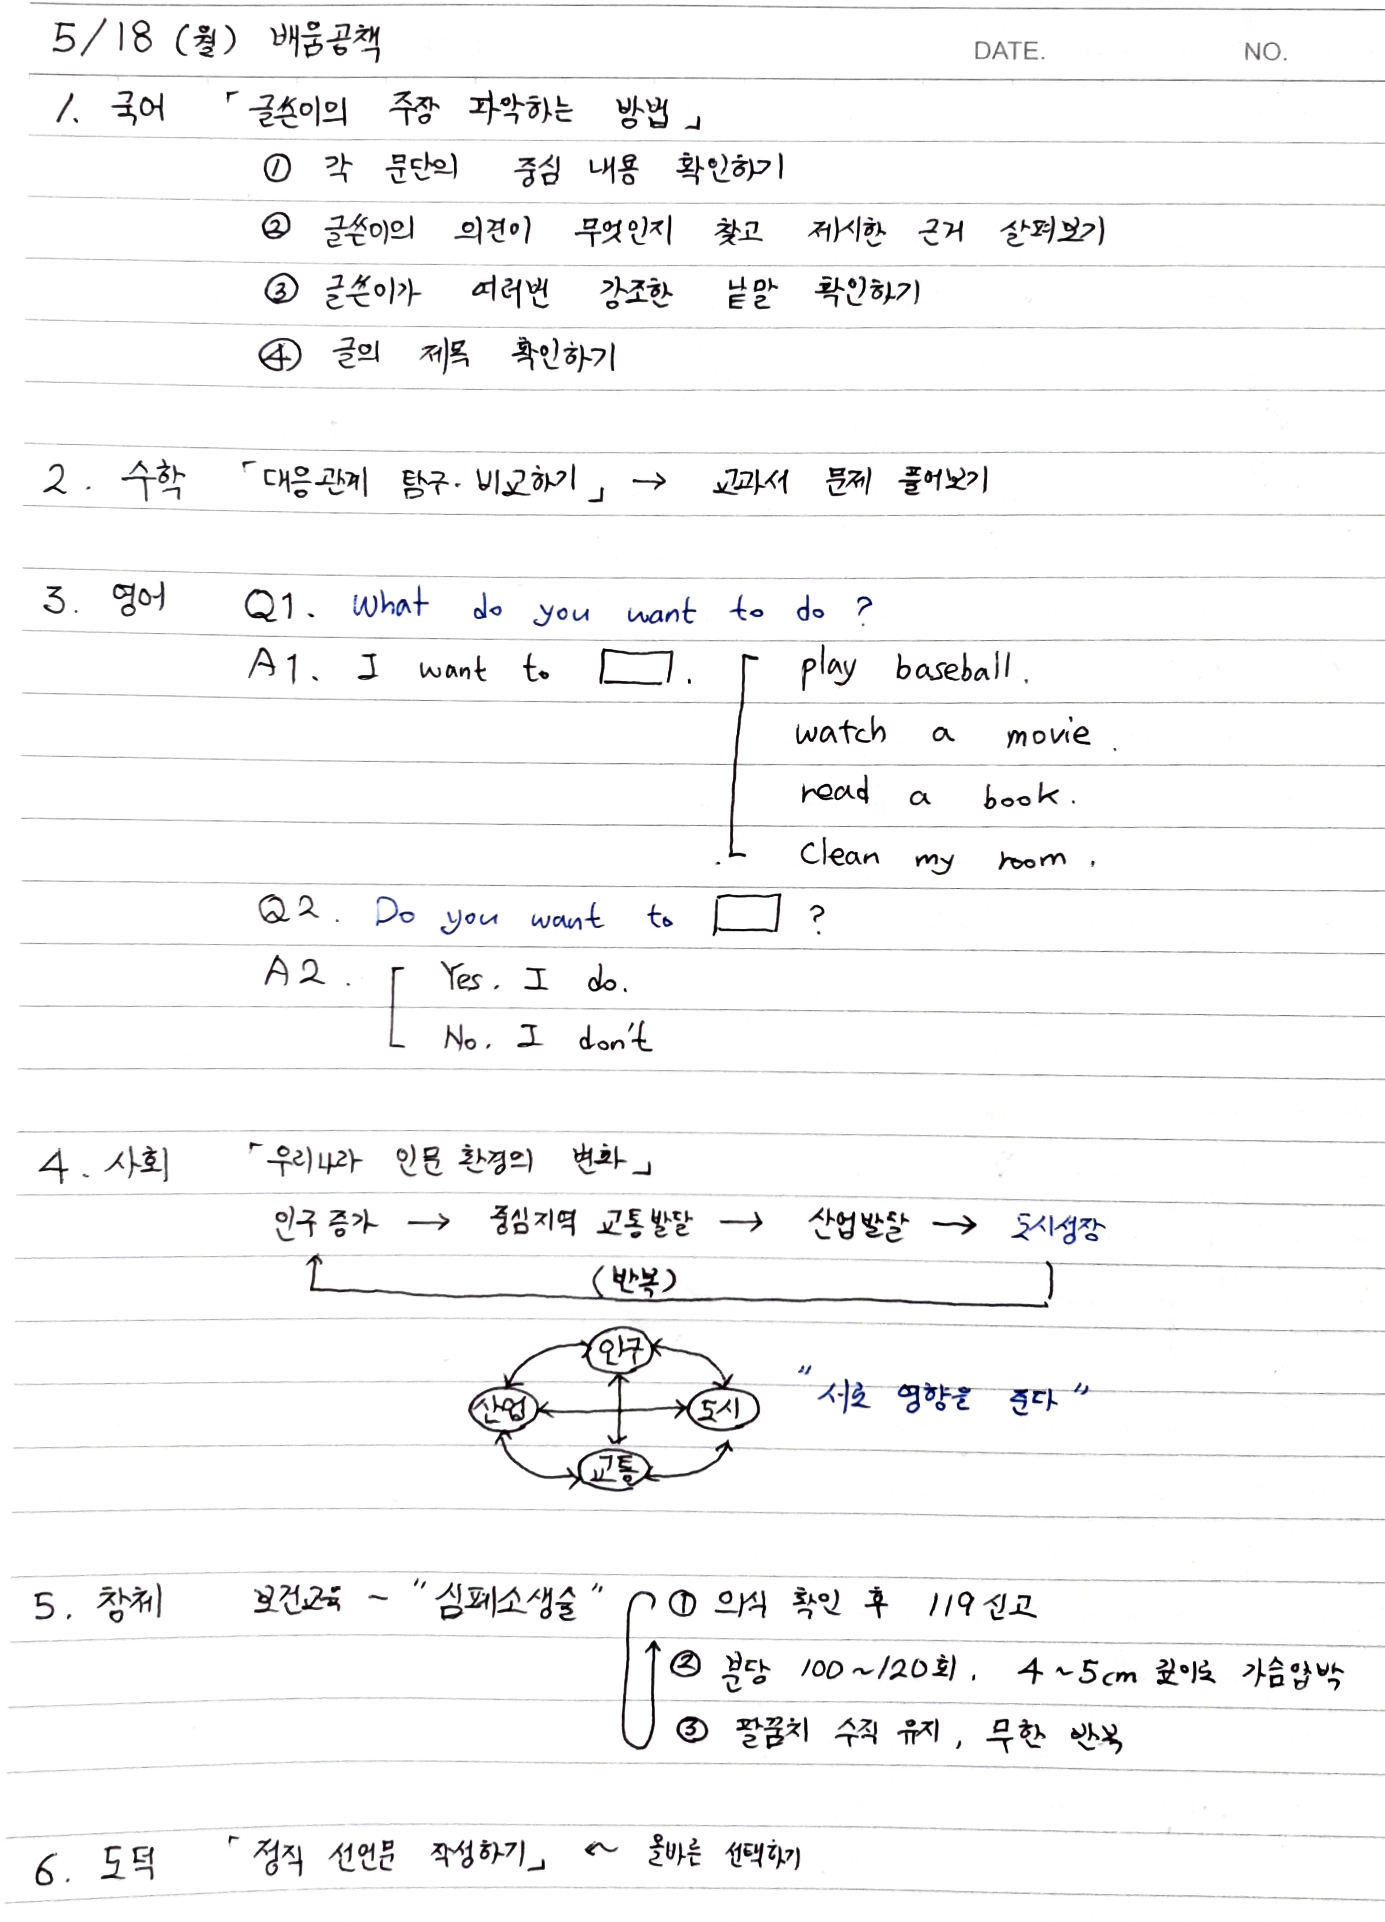 5/18 (월) 배움공책
DATE. NO.
1. 국어 「글쓴이의 주장 파악하는 방법」
① 각 문단의 중심 내용 확인하기
② 글쓴이의 의견이 무엇인지 찾고 제시한 근거 살펴보기
③ 글쓴이가 여러번 강조한 낱말 확인하기
④ 글의 제목 확인하기
2. 수학 「대응관계 탐구·비교하기」 → 교과서 문제 풀어보기
3. 영어 Q1. What do you want to do?
A1. I want to □. play baseball.
watch a movie.
read a book.
Clean my room.
Q2. Do you want to □ ?
A2. Yes. I do.
No. I don't
4. 사회 「우리나라 인문 환경의 변화」
인구 증가 → 중심지역 교통발달 → 산업발달 → 도시성장
(반복)
인구
산업 도시 "서로 영향을 준다"
교통
5. 창체 보건교육 ~ "심폐소생술" ① 의식 확인 후 119 신고
② 분당 100~120회. 4~5cm 깊이로 가슴압박
③ 팔꿈치 수직 유지, 무한 반복
6. 도덕 「정직 선언문 작성하기」 ~ 올바른 선택하기